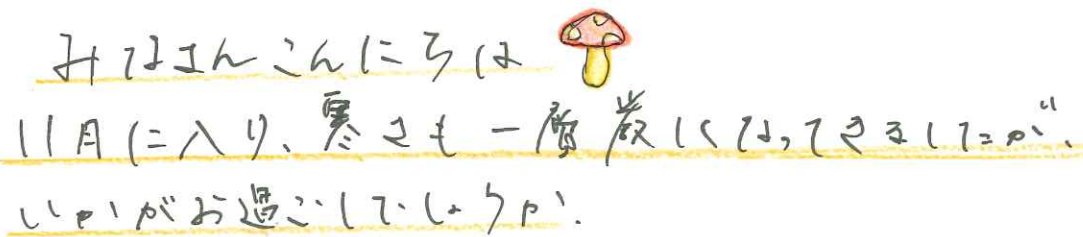 みなさんこんにちは
11月に入り、寒さも一層厳しくなってきましたが、
いかがお過ごしでしょうか.